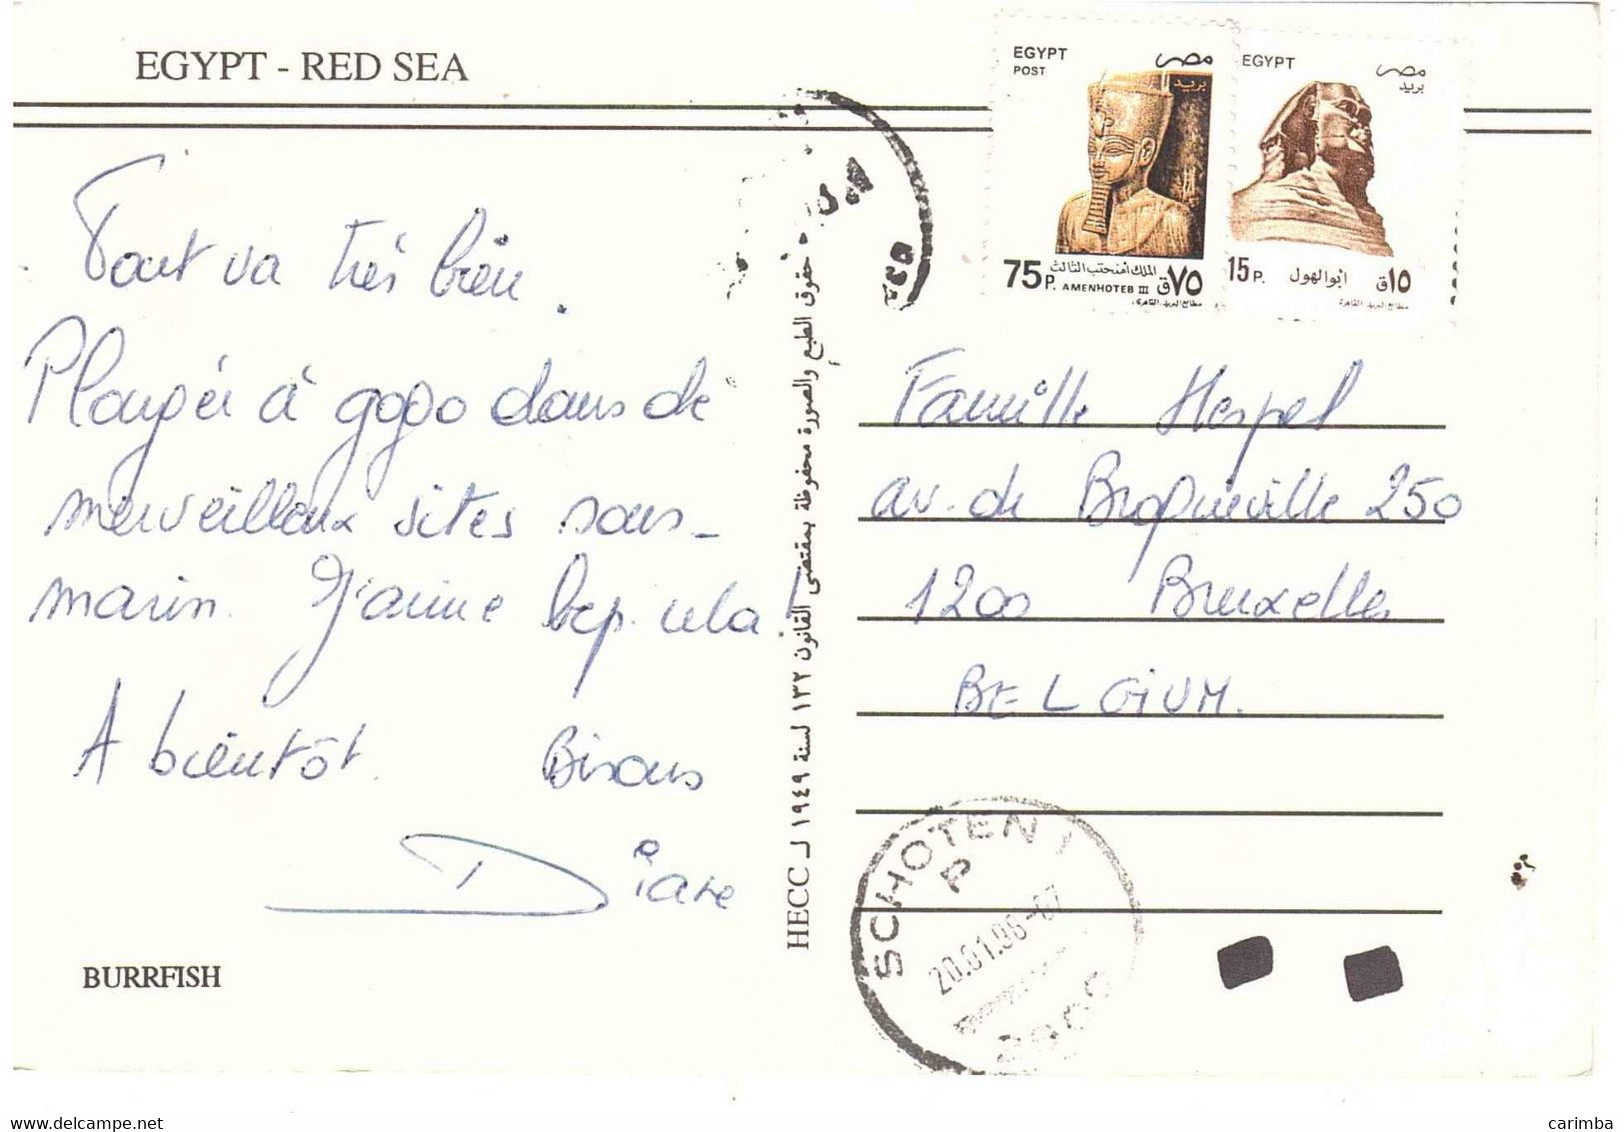 EGYPT - RED SEA
Tout va très bien.
Plongée à gogo dans de
merveilleux sites sous-
marin. J'aime bcp. cela!
A bientôt. Bisous
Diane
BURRFISH
HECC حقوق الطبع والصورة محفوظة بمقتضى القانون ١٣٢ لسنة ١٩٤٩ لـ
EGYPT
POST
مصر
بريد
75P.
الملك امنحتب الثالث
AMENHOTEB III
٧٥ق
مطابع البريد القاهرة
EGYPT
مصر
بريد
15P.
أبو الهول
١٥ق
مطابع البريد القاهرة
Famille Hespel
av. de Broqueville 250
1200 Bruxelles
BELGIUM.
SCHOTEN 1
P
20.01.96-07
delcampe.net
carimba